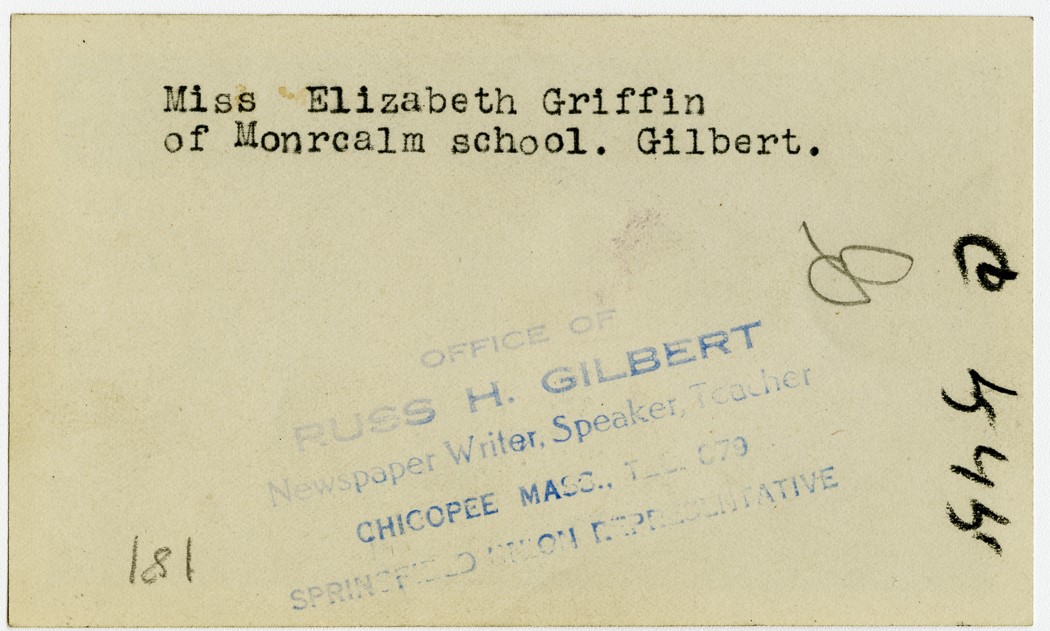 Miss Elizabeth Griffin
of Monrcalm school. Gilbert.
OFFICE OF
RUSS H. GILBERT
Newspaper Writer, Speaker, Teacher
CHICOPEE MASS., TEL. 679
SPRINGFIELD UNION REPRESENTATIVE
181